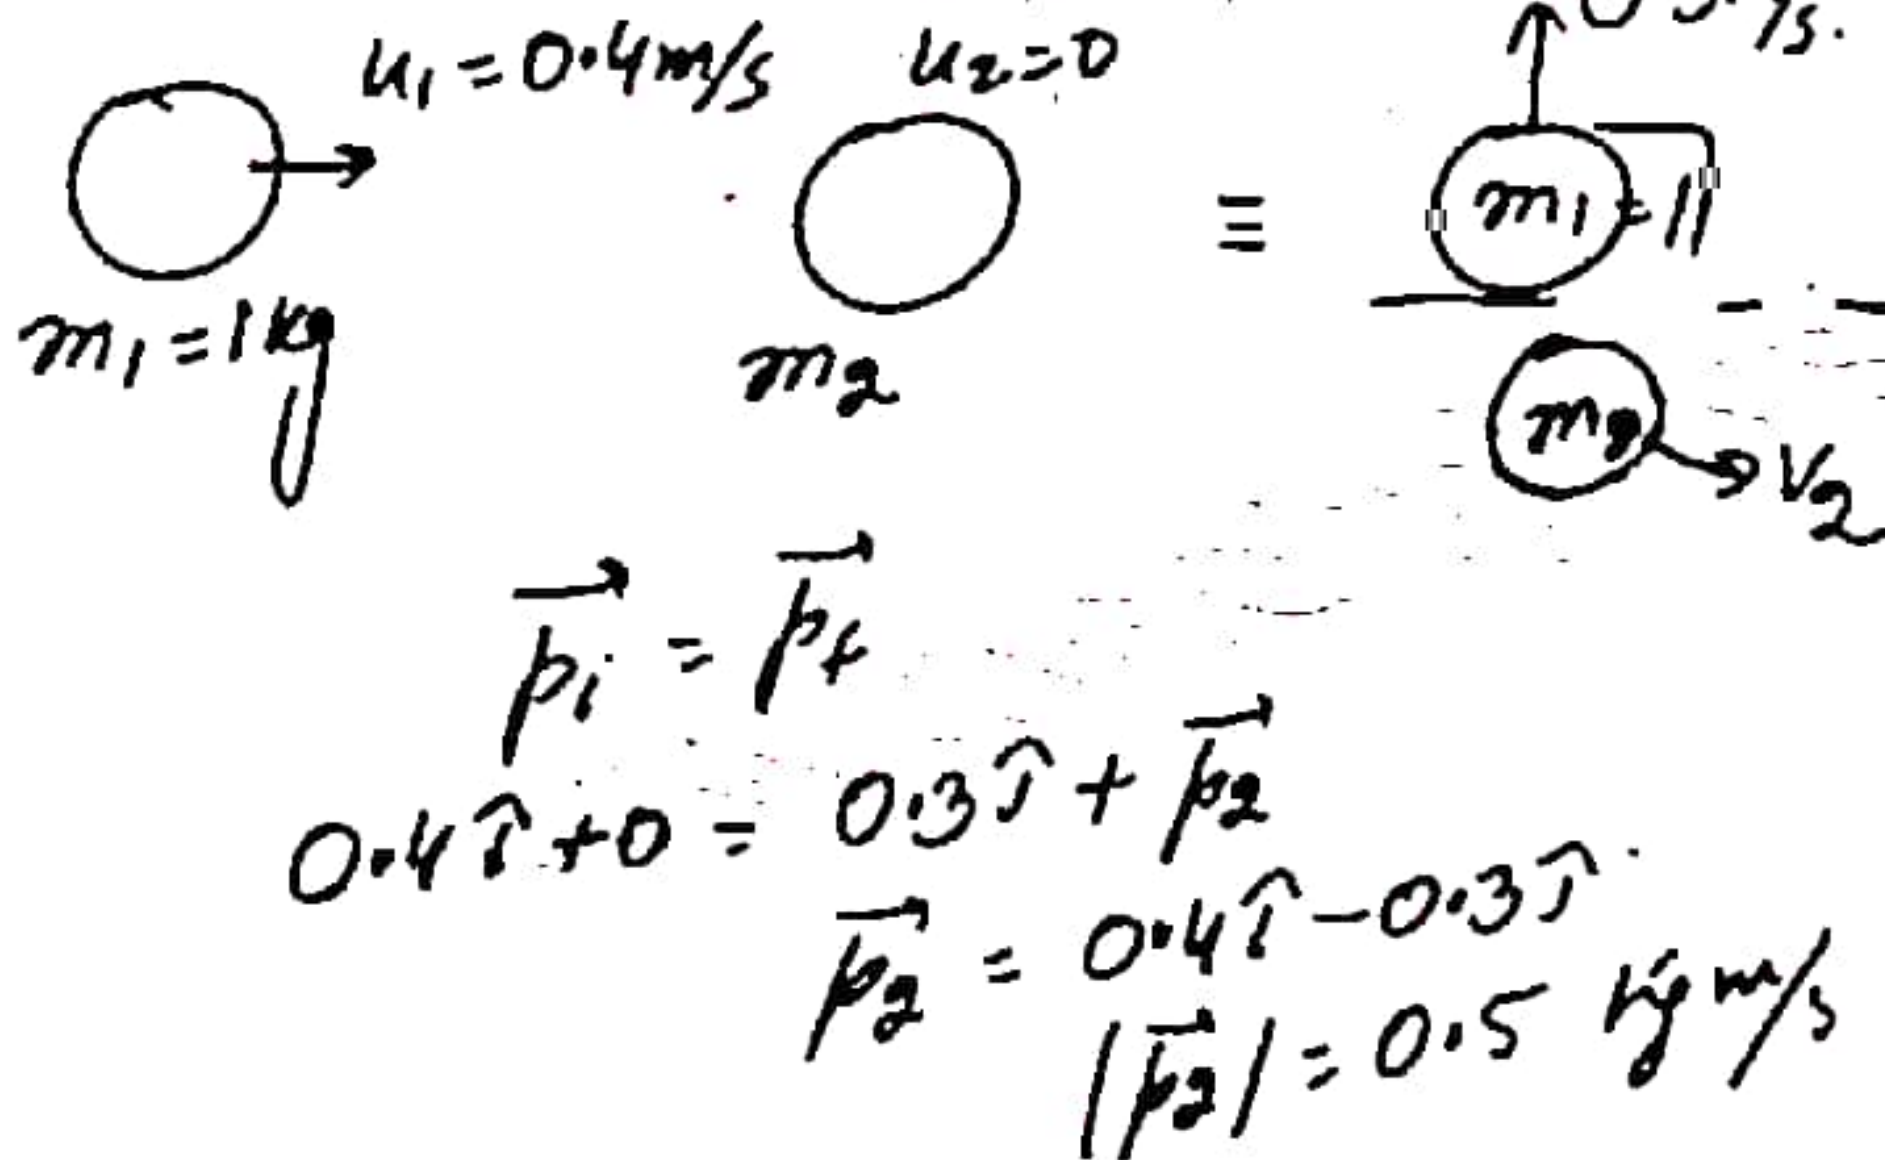 u₁ = 0.4 m/s u₂ = 0
m₁ = 1 kg m₂ ≡ m₁
m₂ v₂
p⃗ᵢ = p⃗f
0.4 î + 0 = 0.3 ĵ + p⃗₂
p⃗₂ = 0.4 î - 0.3 ĵ
|p⃗₂| = 0.5 kg m/s